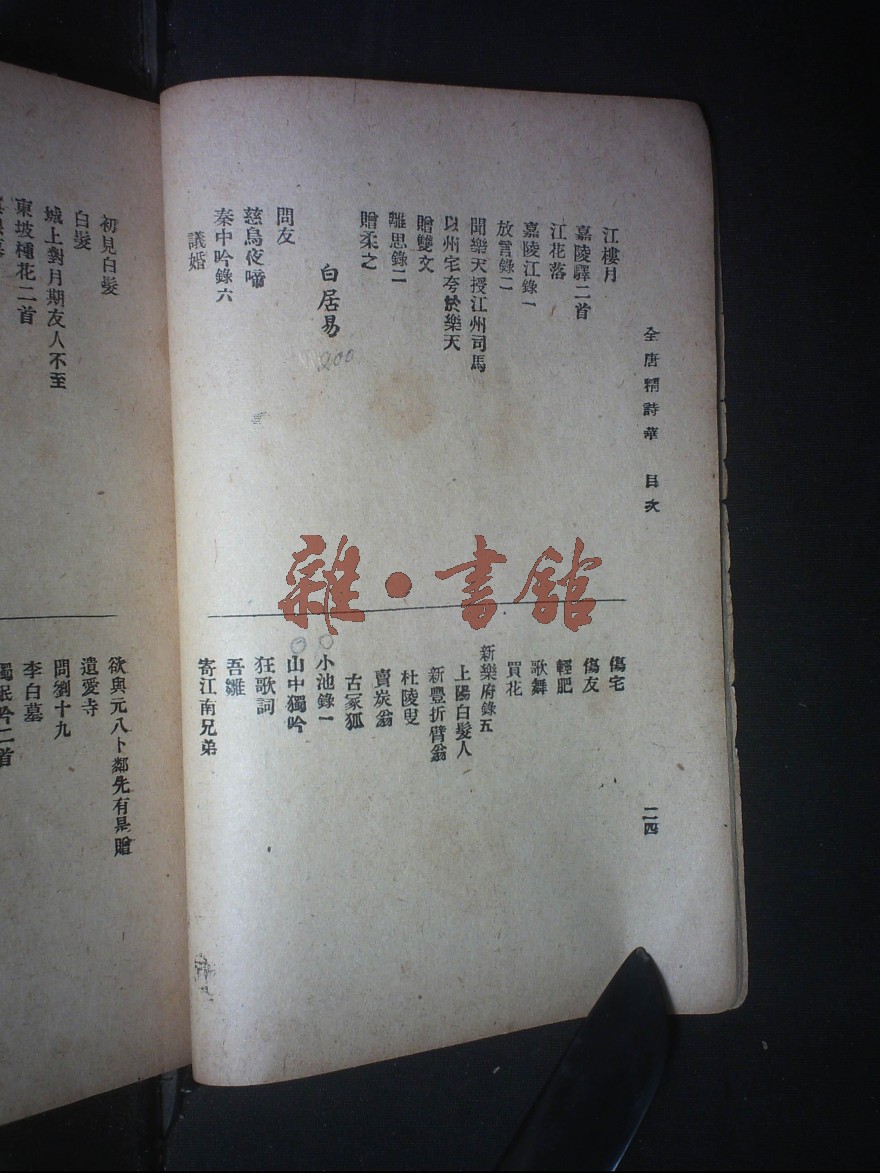 全唐精詩華 目次
二四
江樓月
嘉陵驛二首
江花落
嘉陵江錄一
放言錄二
聞樂天授江州司馬
以州宅夸於樂天
贈雙文
離思錄二
贈柔之
白居易
200
問友
慈烏夜啼
秦中吟錄六
議婚
傷宅
傷友
輕肥
歌舞
買花
新樂府錄五
上陽白髮人
新豐折臂翁
杜陵叟
賣炭翁
古冢狐
小池錄一
山中獨吟
狂歌詞
吾雛
寄江南兄弟
初見白髮
白髮
城上對月期友人不至
東坡種花二首
欲與元八卜鄰先有是贈
遺愛寺
問劉十九
李白墓
獨眠吟二首
雜·書館